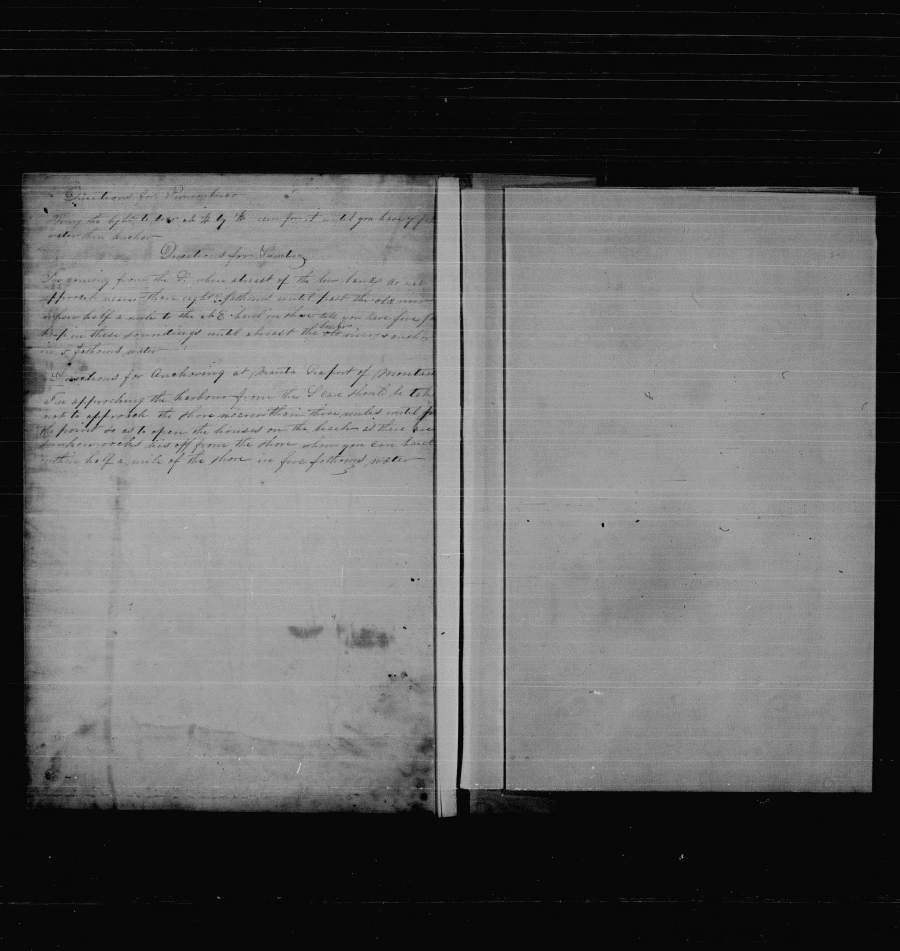 Directions for
Bring the light to bear N W by W run for it until you have 7
water then anchor
Directions for
In coming from the S. when abreast of the low lands do not
approach nearer than eight fathoms until past the old
upon half a mile to the NE haul in shore till you have five
keep in these soundings until abreast the old tower & anchor
in 5 fathoms water
Directions for Anchoring at Manta Seaport of
In approching the harbour from the S care should be
not to approach the shore nearer than three miles until
the point so as to open the houses on the beach as there are
sunken rocks lies off from the shore when you can haul
within half a mile of the shore in five fathoms water